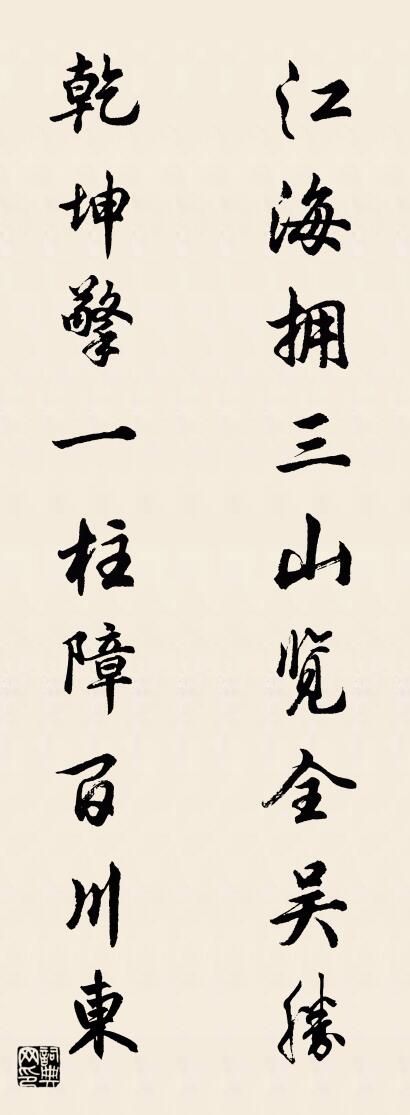 江海拥三山览全吴勝
乾坤擎一柱障百川東
詞典網印